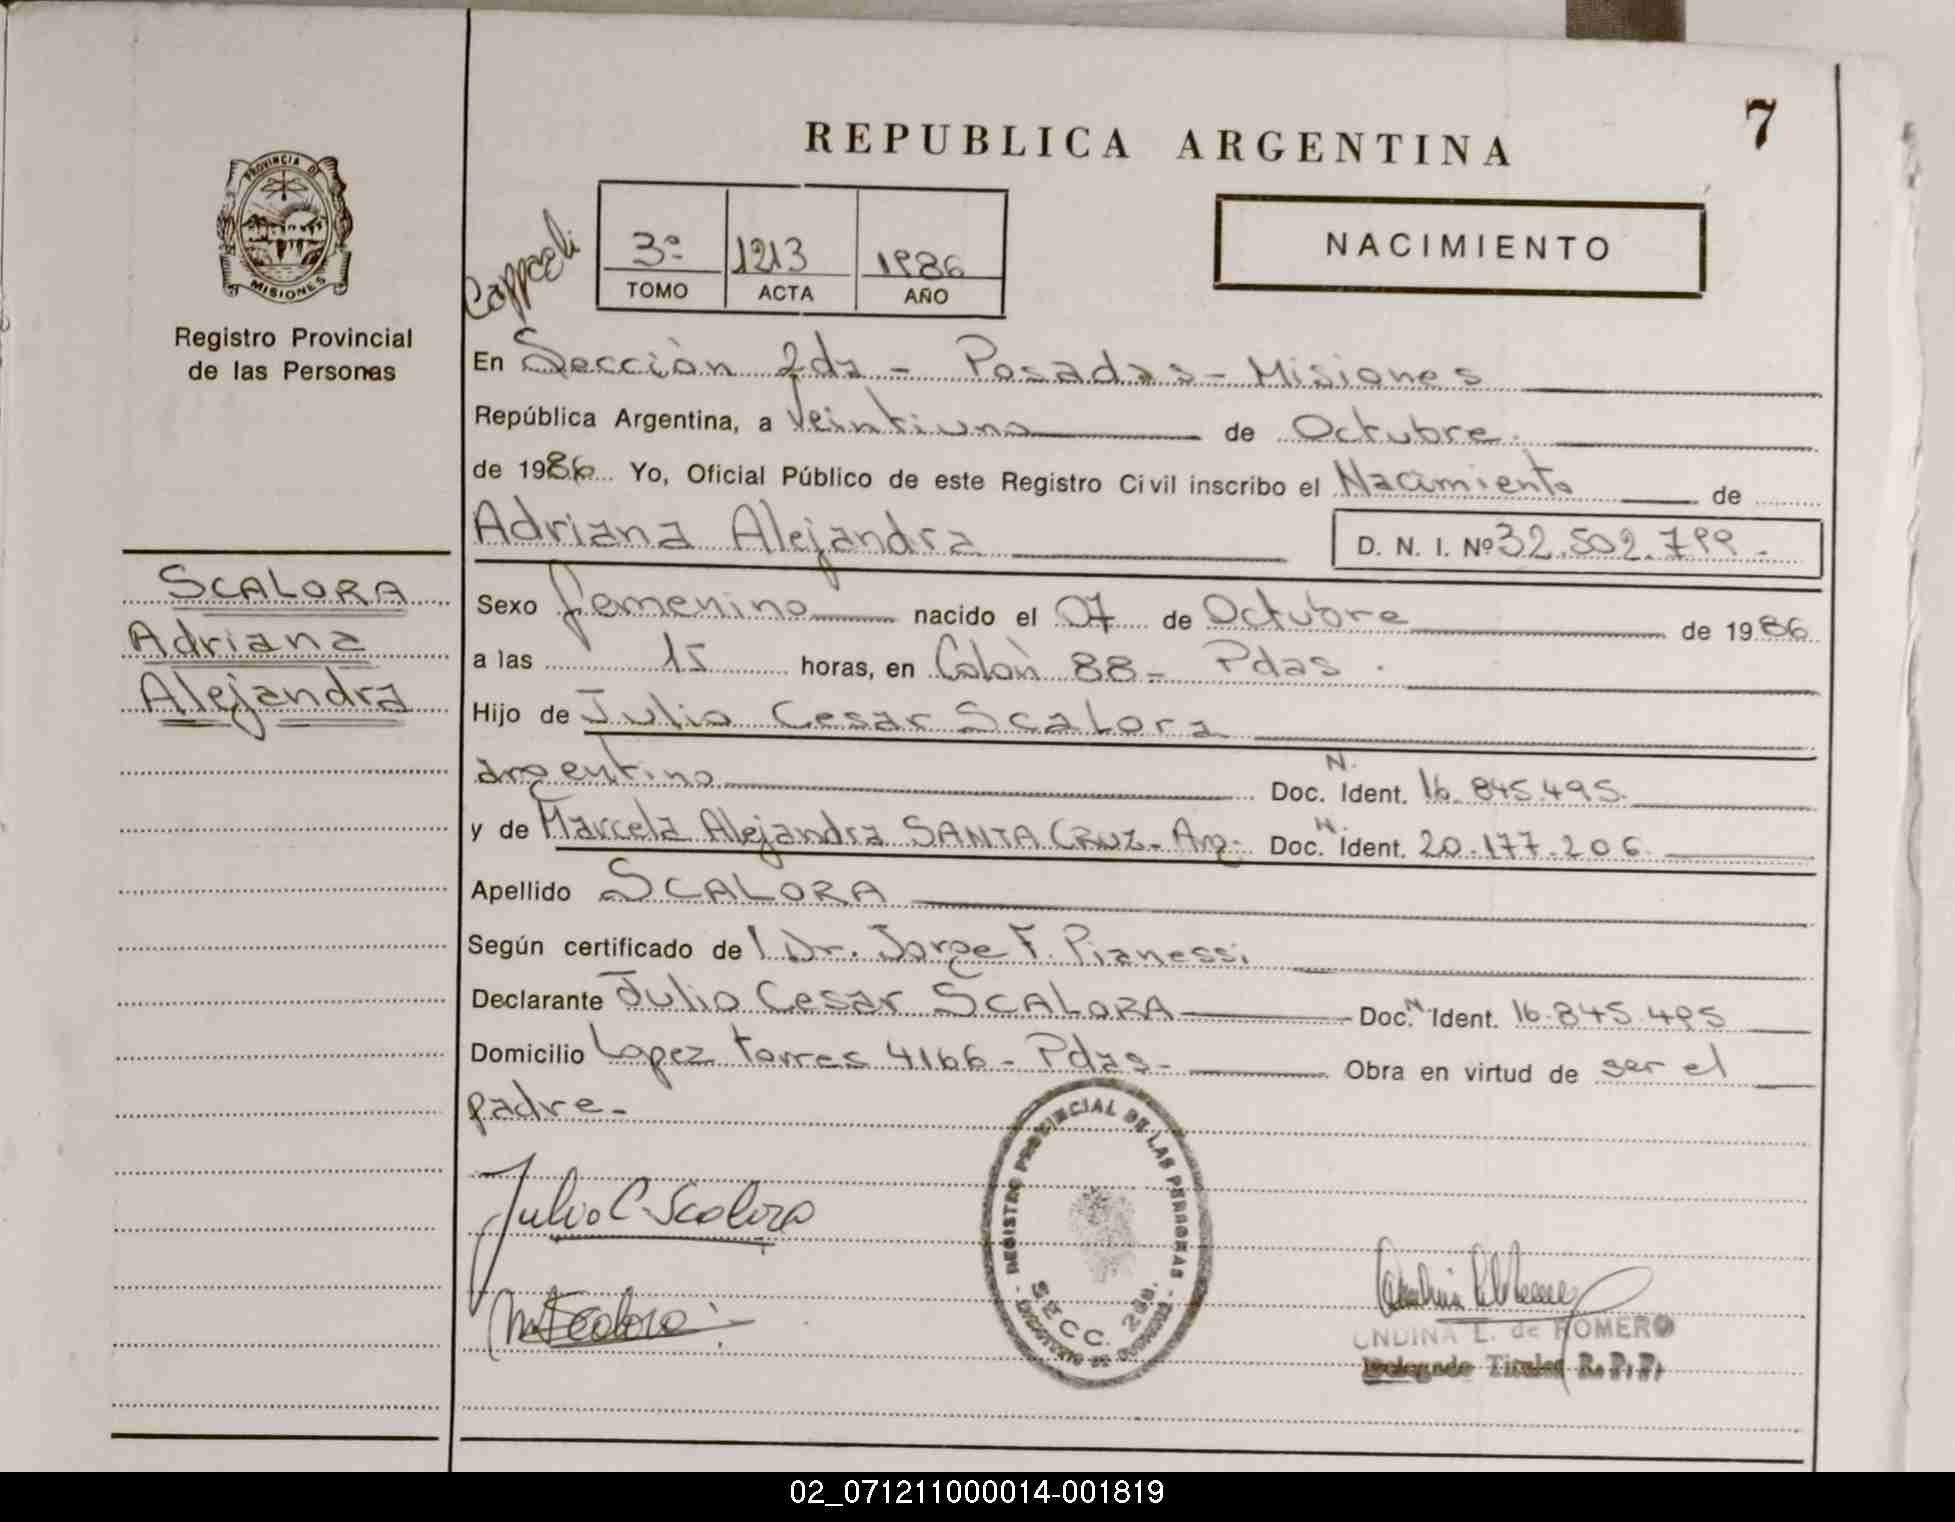 7
REPUBLICA ARGENTINA
PROVINCIA DE
MISIONES
Registro Provincial
de las Personas
3º 1213 1986
TOMO ACTA AÑO
NACIMIENTO
En Sección 2da - Posadas - Misiones
República Argentina, a Veintiuno de Octubre.
de 1986 Yo, Oficial Público de este Registro Civil inscribo el Nacimiento de
Adriana Alejandra D. N. I. Nº 32.502.799.-
SCALORA
Adriana
Alejandra
Sexo femenino nacido el 07 de Octubre de 1986
a las 15 horas, en Colòn 88 - Pdas.
Hijo de Julio Cesar Scalora
argentino Doc. N. Ident. 16.845.495.
y de Marcela Alejandra SANTA CRUZ - Arg. Doc. N. Ident. 20.177.206
Apellido SCALORA
Según certificado del Dr. Jorge F. Pianessi
Declarante Julio Cesar SCALORA Doc. N Ident. 16.845.495
Domicilio Lopez torres 4166 - Pdas - Obra en virtud de ser el
padre -
REGISTRO PROVINCIAL DE LAS PERSONAS
SECC. 2da.
Julio C. Scalora
ONDINA L. de ROMERO
Delegado Titular R.P.P.
02_071211000014-001819